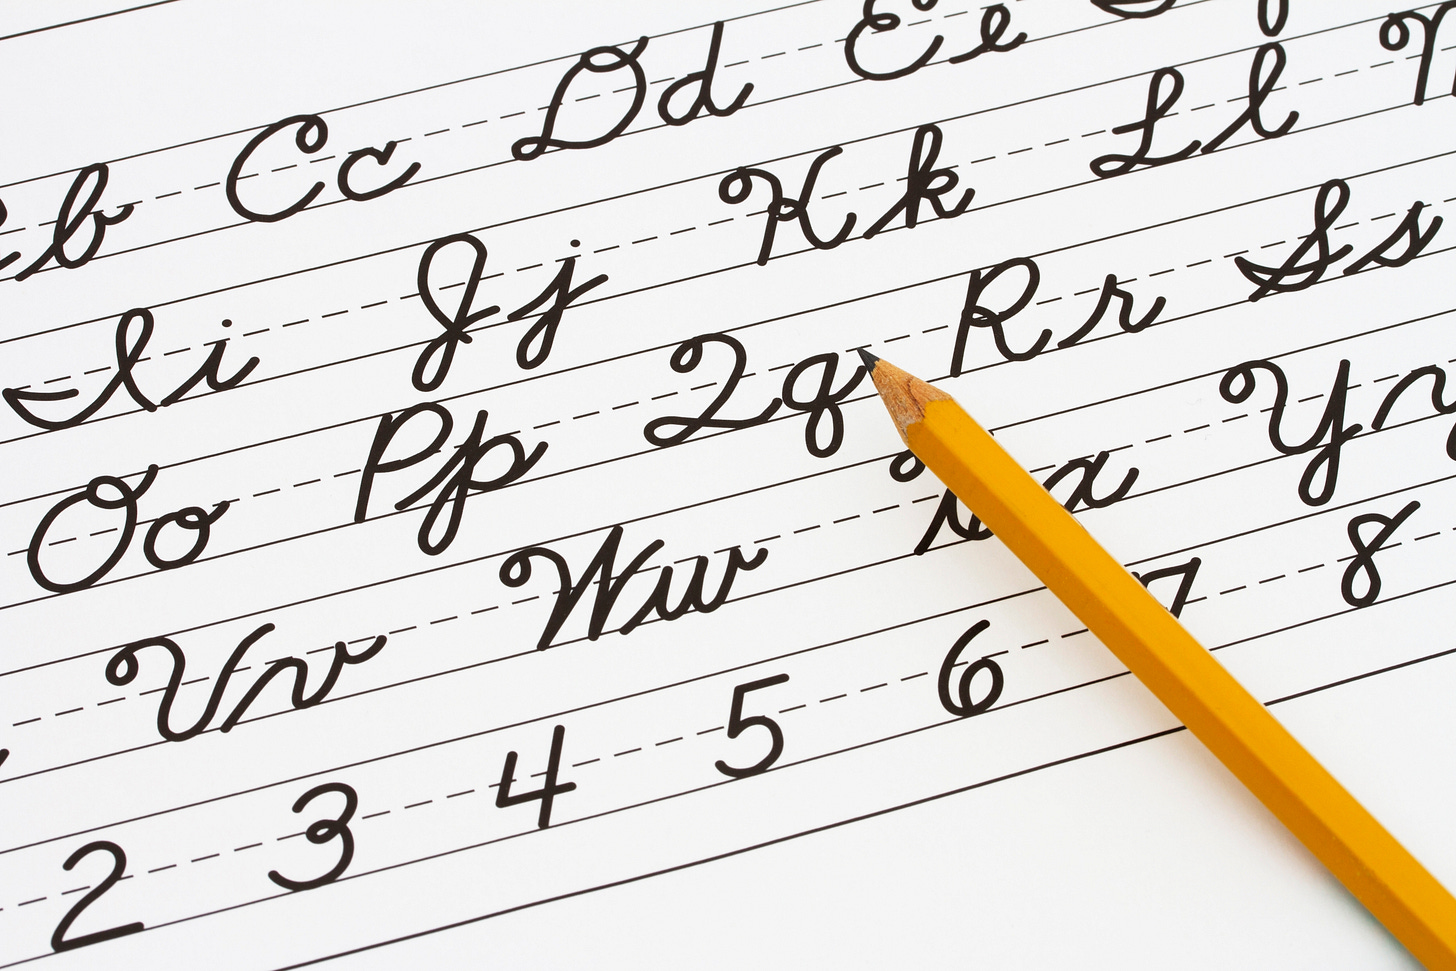 b Cc Dd Ee
Ii Jj Kk Ll
Oo Pp Qq Rr Ss
Vv Ww x Yy
2 3 4 5 6 7 8